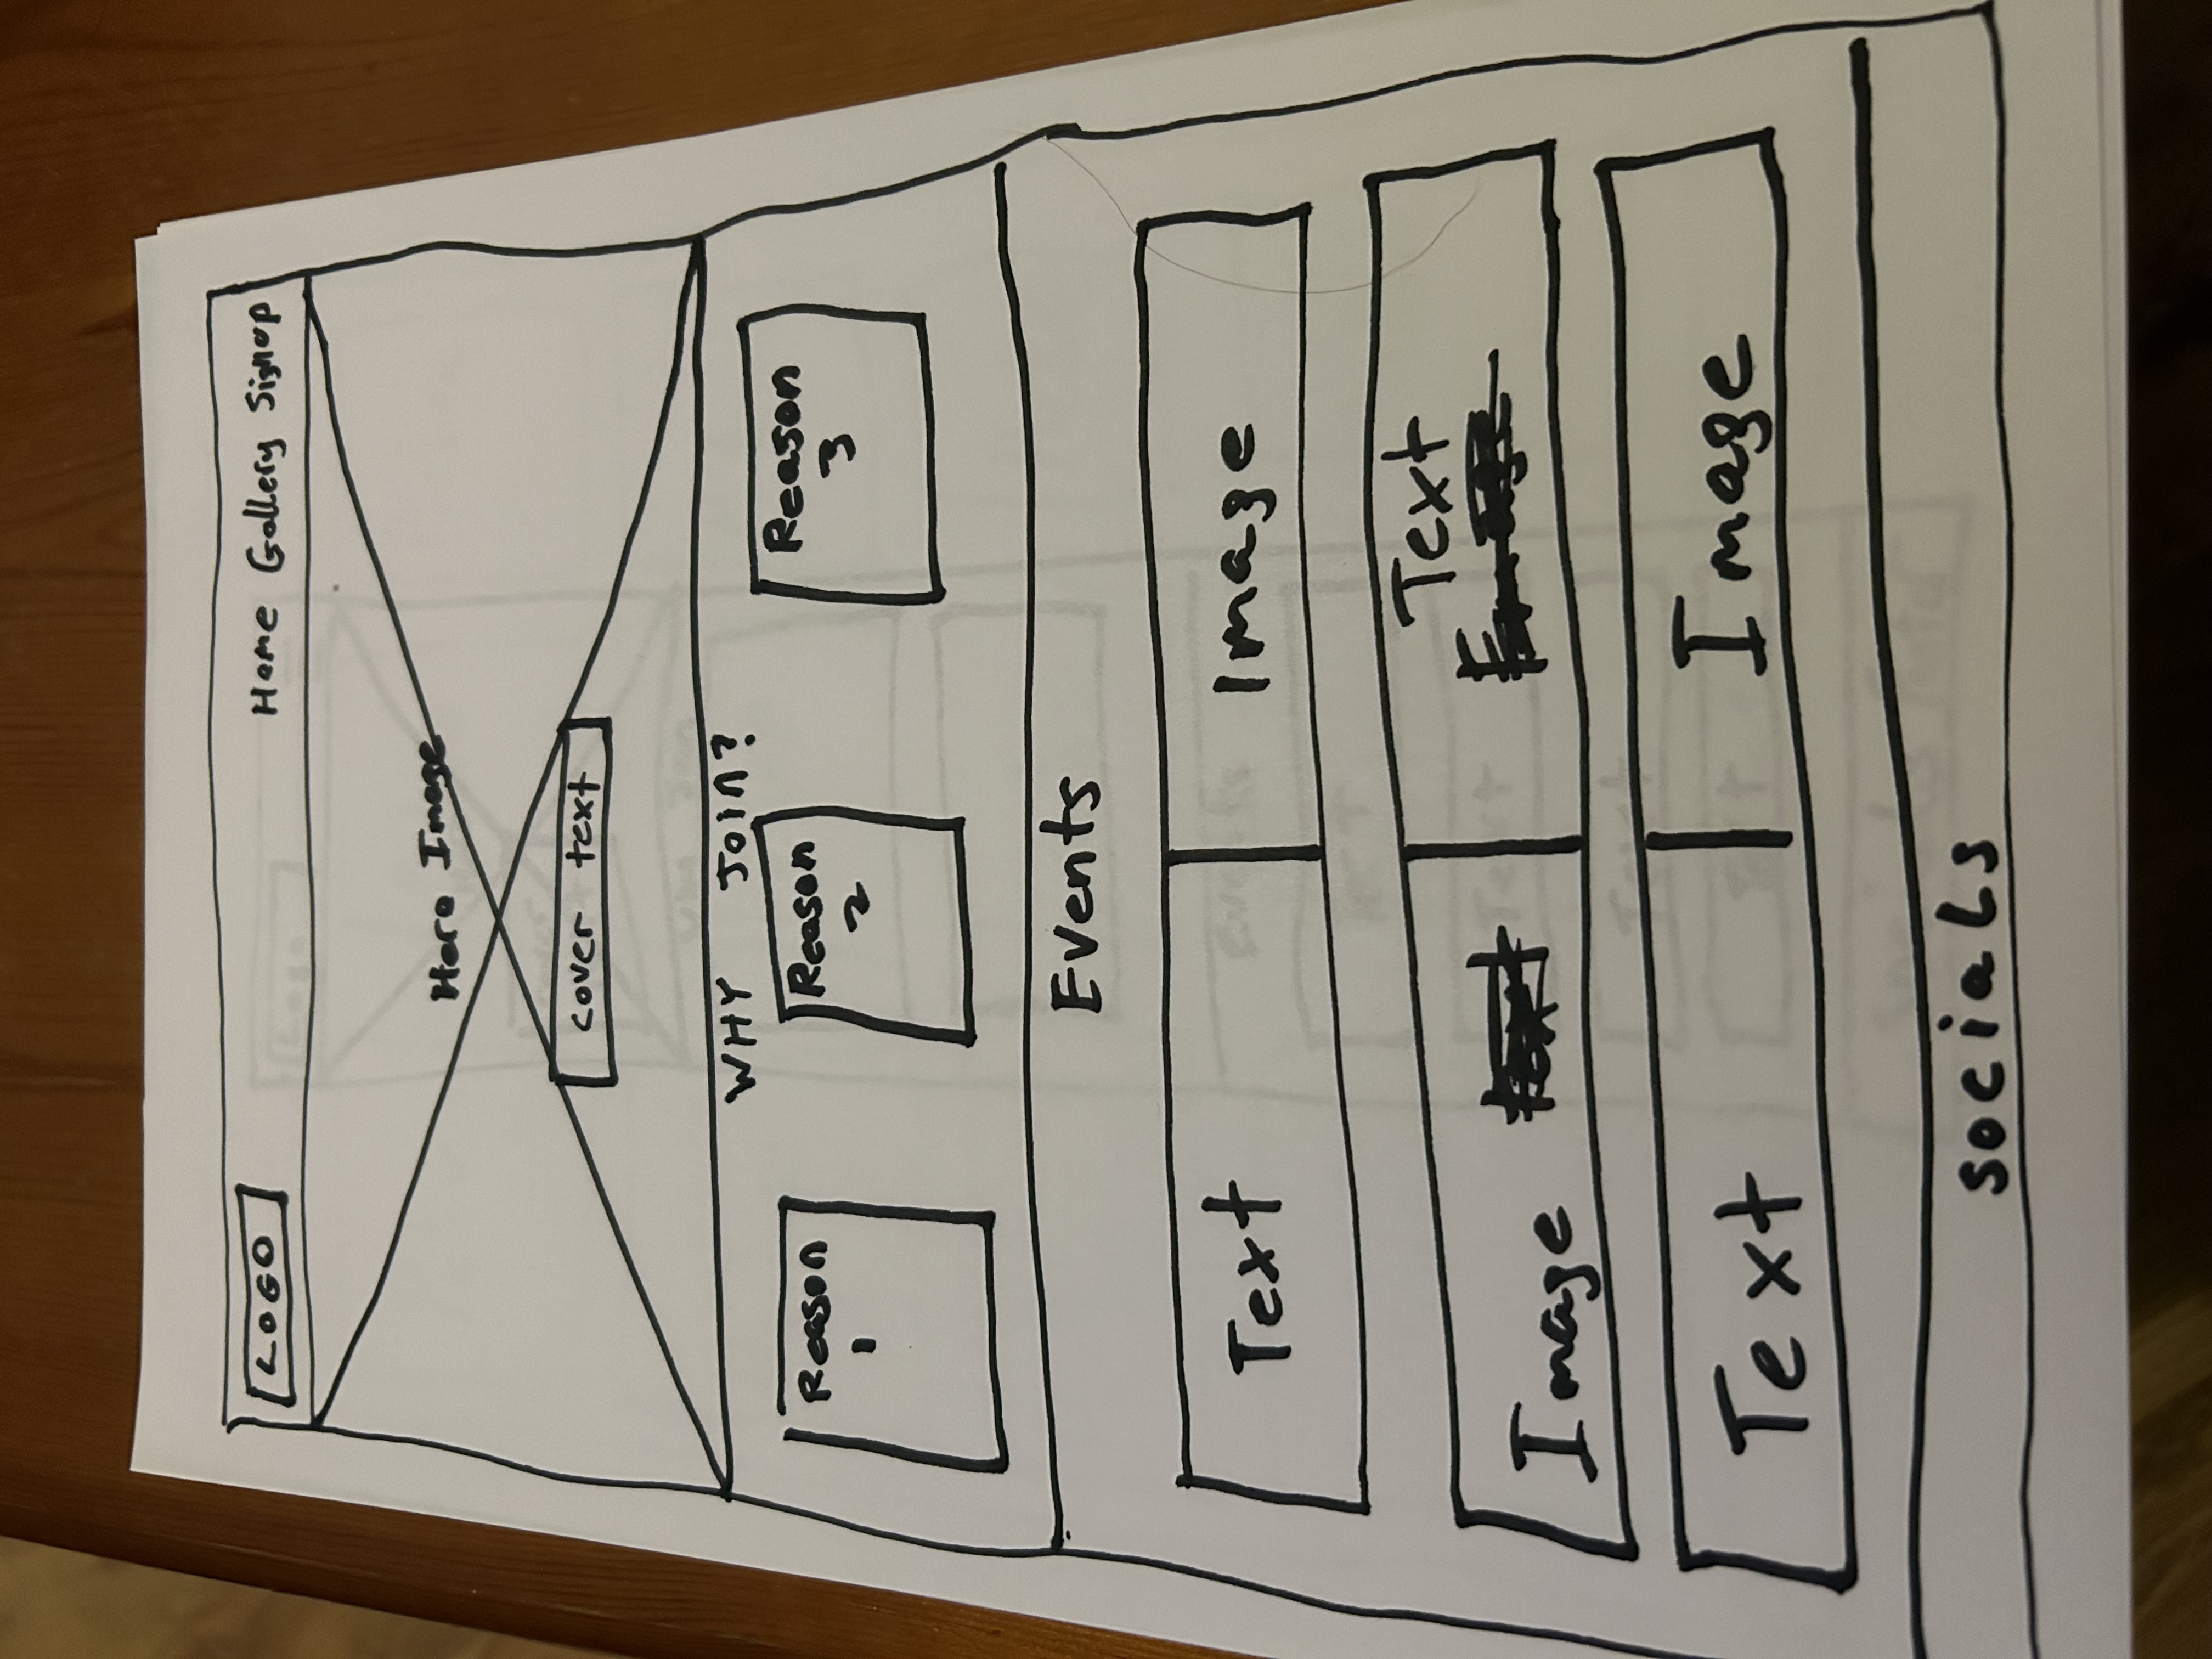 LOGO
Home Gallery Signup
Hero Image
cover text
WHY JOIN?
Reason
1
Reason
2
Reason
3
Events
Text
Image
Text
Image
Text
Image
socials